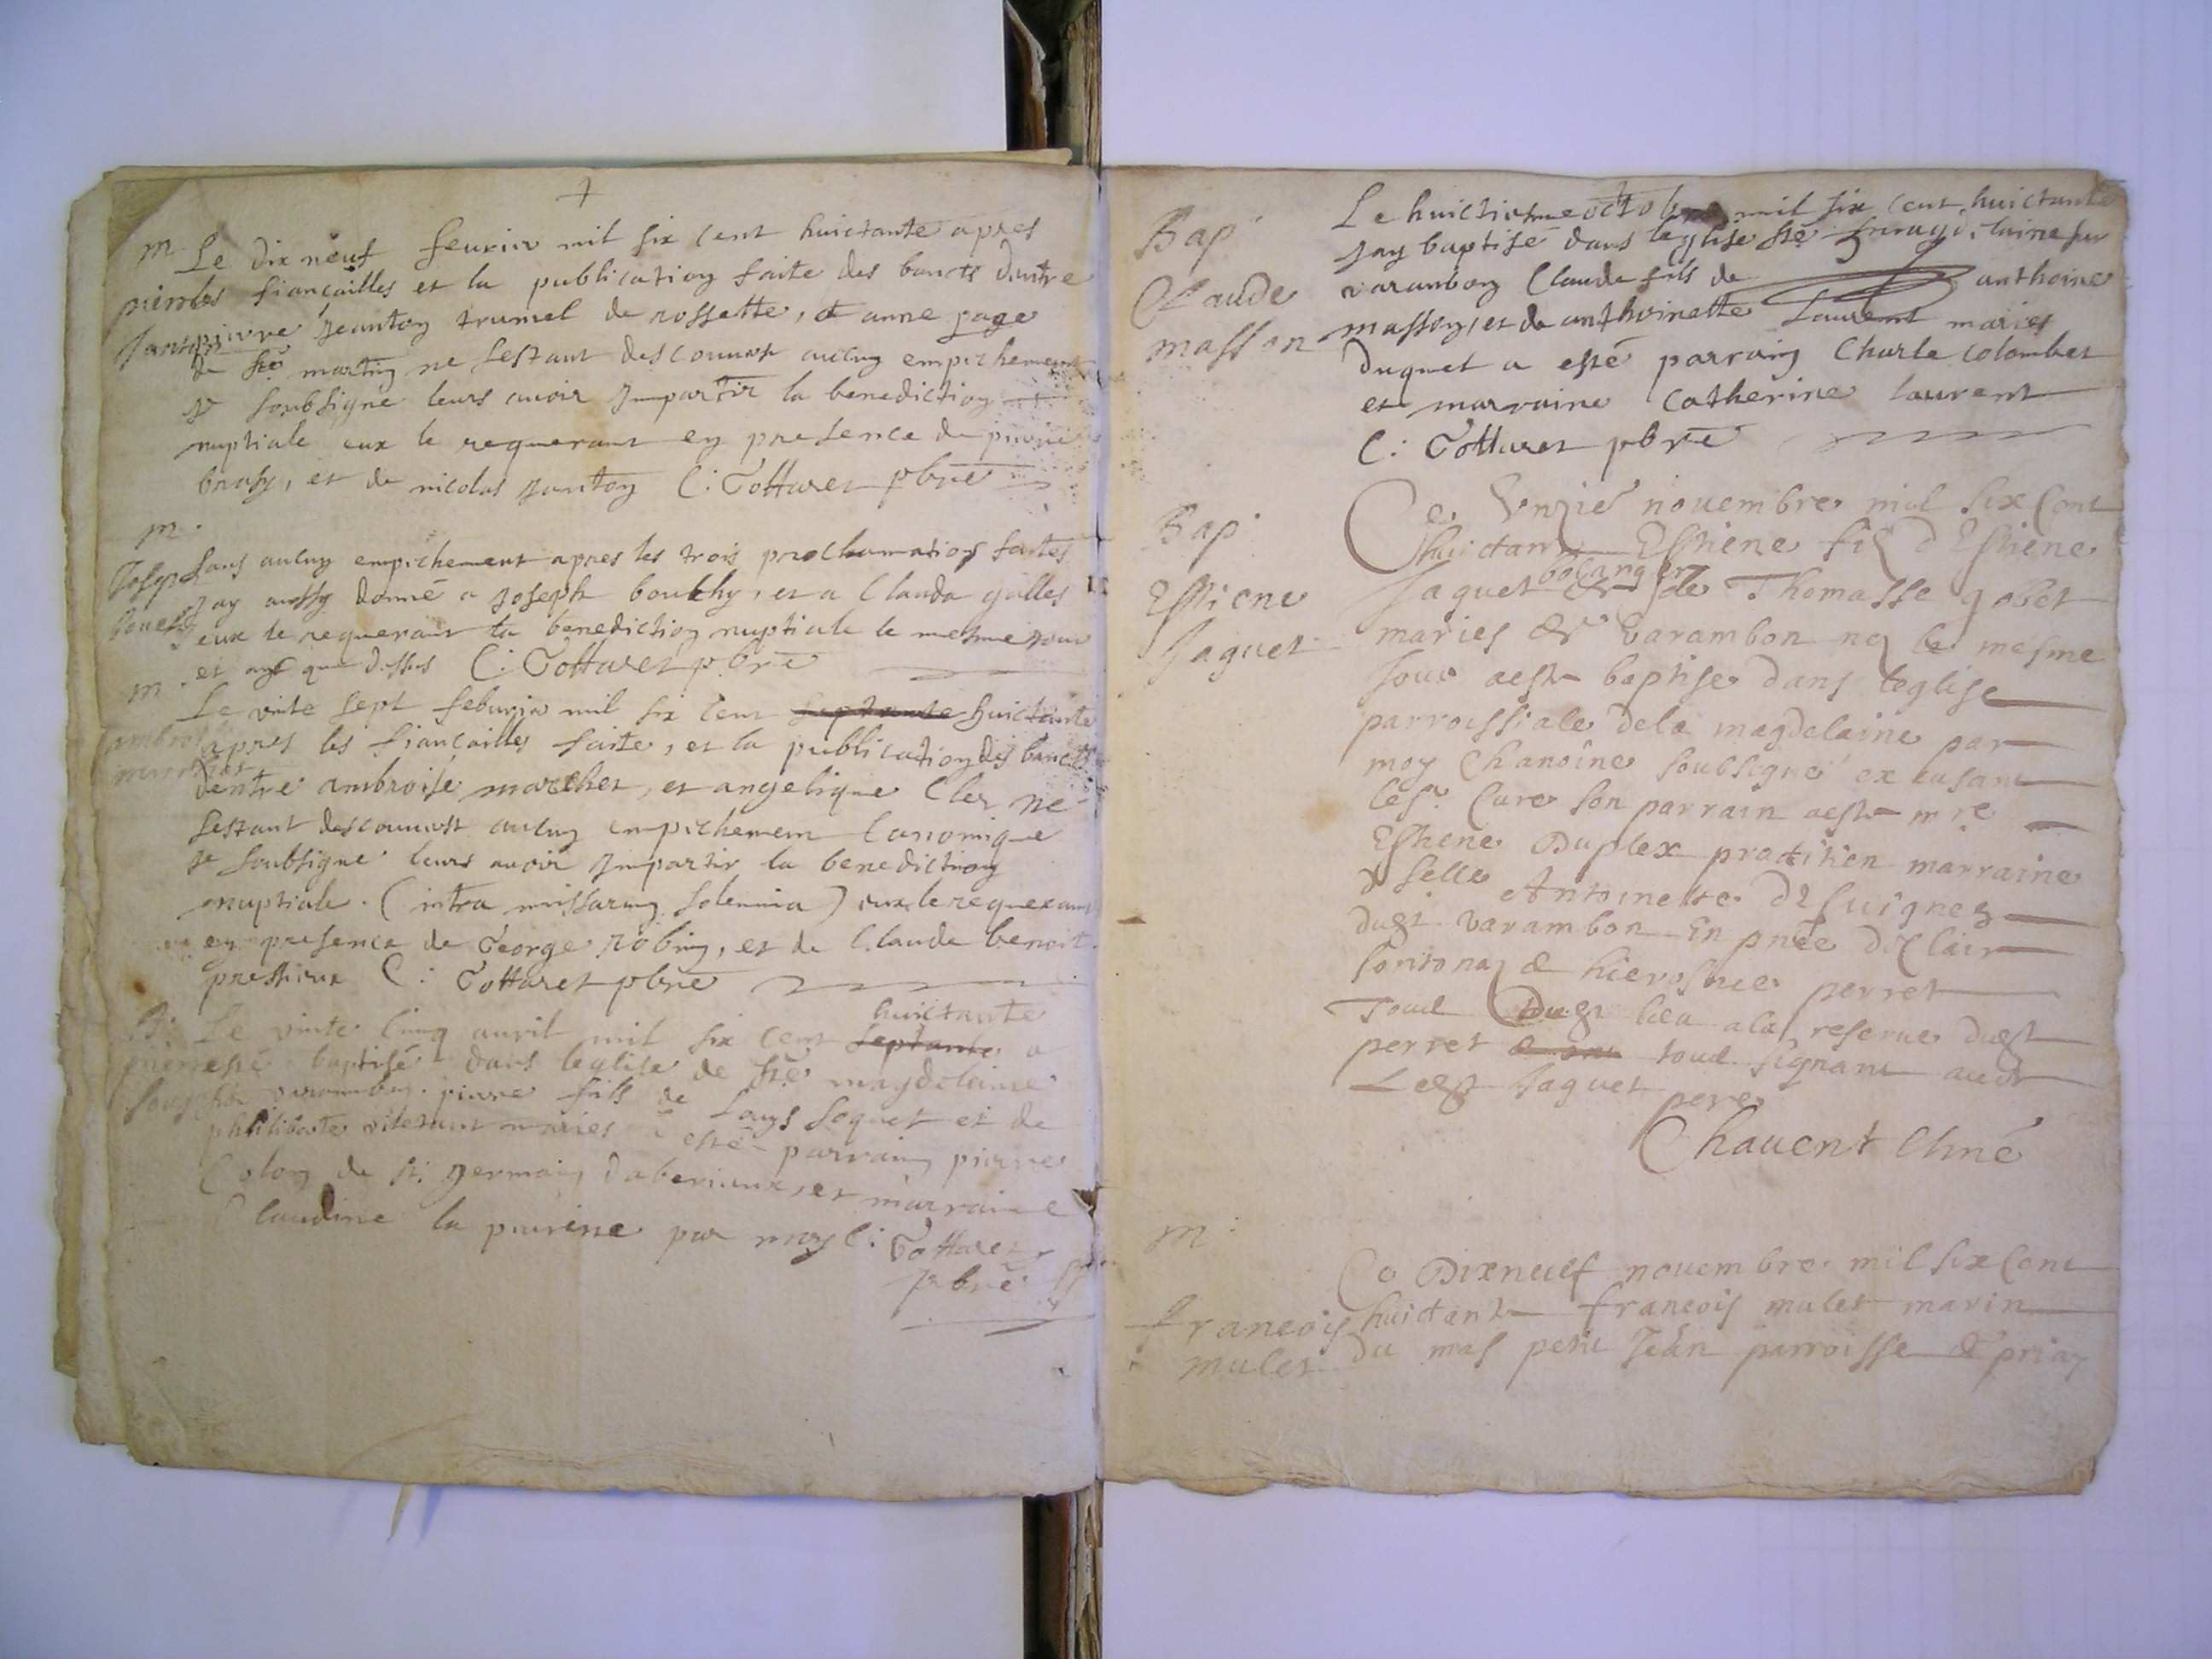 m.
Le dix neuf feurier mil six cent huictante apres
les fiançailles et la publication faite des bancts dentre
pierre Jeanton trumel de rossette, et anne page
de ste martin ne sestant descouuert aulcun empichement
Je soubsigne leurs auoir Jmpartir la benediction
nuptiale eux le requerant en presence de pierre
et de nicolas Janton C: Tottaret pbre
m.
Joseph
sans aulcun empichement apres les trois proclamation faites
Jay aussy donné a Joseph bouchy, et a Clauda galles
eux le requerant la benediction nuptiale le mesme jour
et an que dessus C: Tottaret pbre
m.
Le vinte sept feburier mil six cent septante huictante
apres les fiançailles faite, et la publication des bancts
dentre ambroise marchet, et angelique Cler ne
sestant descouuert aulcun empichement Canonique
Je soubsigne leurs auoir Jmpartir la benediction
nuptiale. (intra missarum solemnia) eux le requerant
en presence de George robin, et de Claude benoit
C: Tottaret pbre
huictante
Le vinte cinq auril mil six cent septante a
esté baptisé dans leglise de ste magdeleine
pierre fils de Louys soquet et de
philiberte maries a esté parrain pierre
Colon de st germain daberieux, et marraine
Claudine la par moy C: Tottaret
pbre
Bap
Claude
masson
Le huictiesme octobre mil six cent huictante
Jay baptisé dans leglise ste
varanbon Claude fils de anthoine
masson, et de anthoinette Laurent maries
duquel a esté parrain Charle colombet
et marraine Catherine laurent
C: Tottaret pbre
Bap
Estiene
Jaquet
Ce Unzie nouembre mil six Cent
huictante Estiene fis d Estiene
Jaquet bolanger & de Thomasse gobet
maries de Varambon nez le mesme
Jour aeste baptise dans leglise
parroissiale dela magdelaine par
moy Chanoine soubsigné
Cure son parrain aeste mre
Estiene Duplex pratitien marraine
dselle Antoinette
dudt Varambon En pnce de Clair
& hierosme perret
Tout dudt lieu a la reserue dudt
perret tout signant auec
Ledt Jaquet pere
Chauent Chne
m:
francois
mulet
Ce Dixneuf nouembre mil six Cent
huictante francois mulet marin
du mas petit Jean parroisse de priay